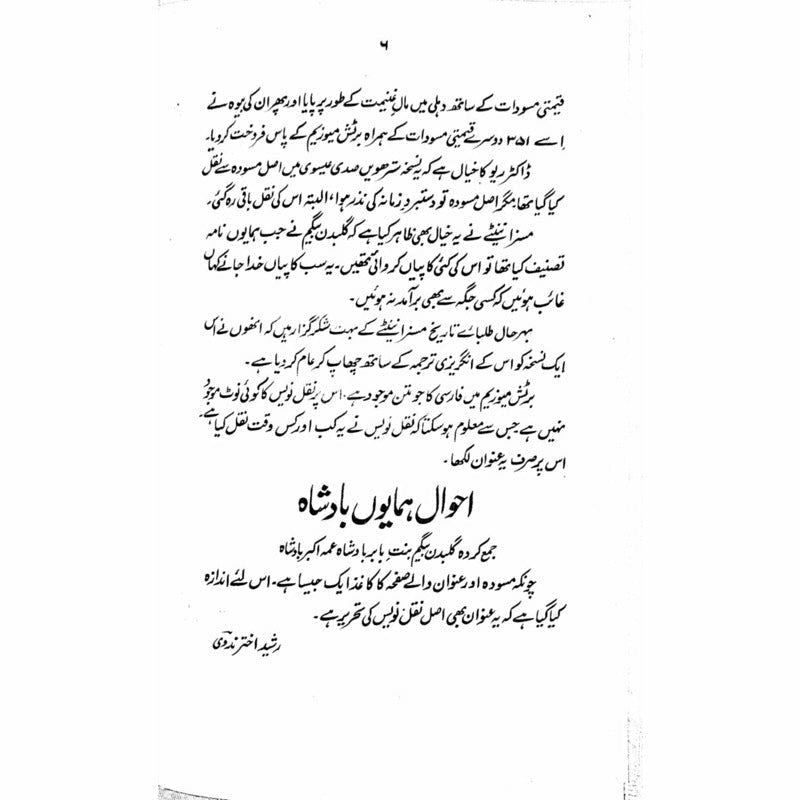 ۶
قیمتی مسودات کے ساتھ دہلی میں مالِ غنیمت کے طور پر پایا اور پھر ان کی بیوہ نے
اِسے ۳۵۱ دوسرے قیمتی مسودات کے ہمراہ برٹش میوزیم کے پاس فروخت کر دیا۔
ڈاکٹر ریو کا خیال ہے کہ یہ نسخہ سترھویں صدی عیسوی میں اصل مسودہ سے نقل
کیا گیا تھا مگر اصل مسودہ تو دستبردِ زمانہ کی نذر ہوا، البتہ اس کی نقل باقی رہ گئی۔
مسز اینیٹے نے یہ خیال بھی ظاہر کیا ہے کہ گلبدن بیگم نے جب ہمایوں نامہ
تصنیف کیا تھا تو اس کی کئی کاپیاں کروائی تھیں۔ یہ سب کاپیاں خدا جانے کہاں
غائب ہوئیں کہ کسی جگہ سے بھی برآمد نہ ہوئیں۔
بہرحال طلبائے تاریخ مسز اینیٹے کے بہت شکر گزار ہیں کہ انھوں نے اس
ایک نسخہ کو اس کے انگریزی ترجمہ کے ساتھ چھاپ کر عام کر دیا ہے۔
برٹش میوزیم میں فارسی کا جو متن موجود ہے، اس پر نقل نویس کا کوئی نوٹ موجود
نہیں ہے جس سے معلوم ہو سکتا کہ نقل نویس نے یہ کب اور کس وقت نقل کیا ہے۔
اس پر صرف یہ عنوان لکھا۔
احوال ہمایوں بادشاہ
جمع کردہ گلبدن بیگم بنت بابر بادشاہ عمہ اکبر بادشاہ
چونکہ مسودہ اور عنوان والے صفحہ کا کاغذ ایک جیسا ہے۔ اس لئے اندازہ
کیا گیا ہے کہ یہ عنوان بھی اصل نقل نویس کی تحریر ہے۔
رشید اختر ندوی